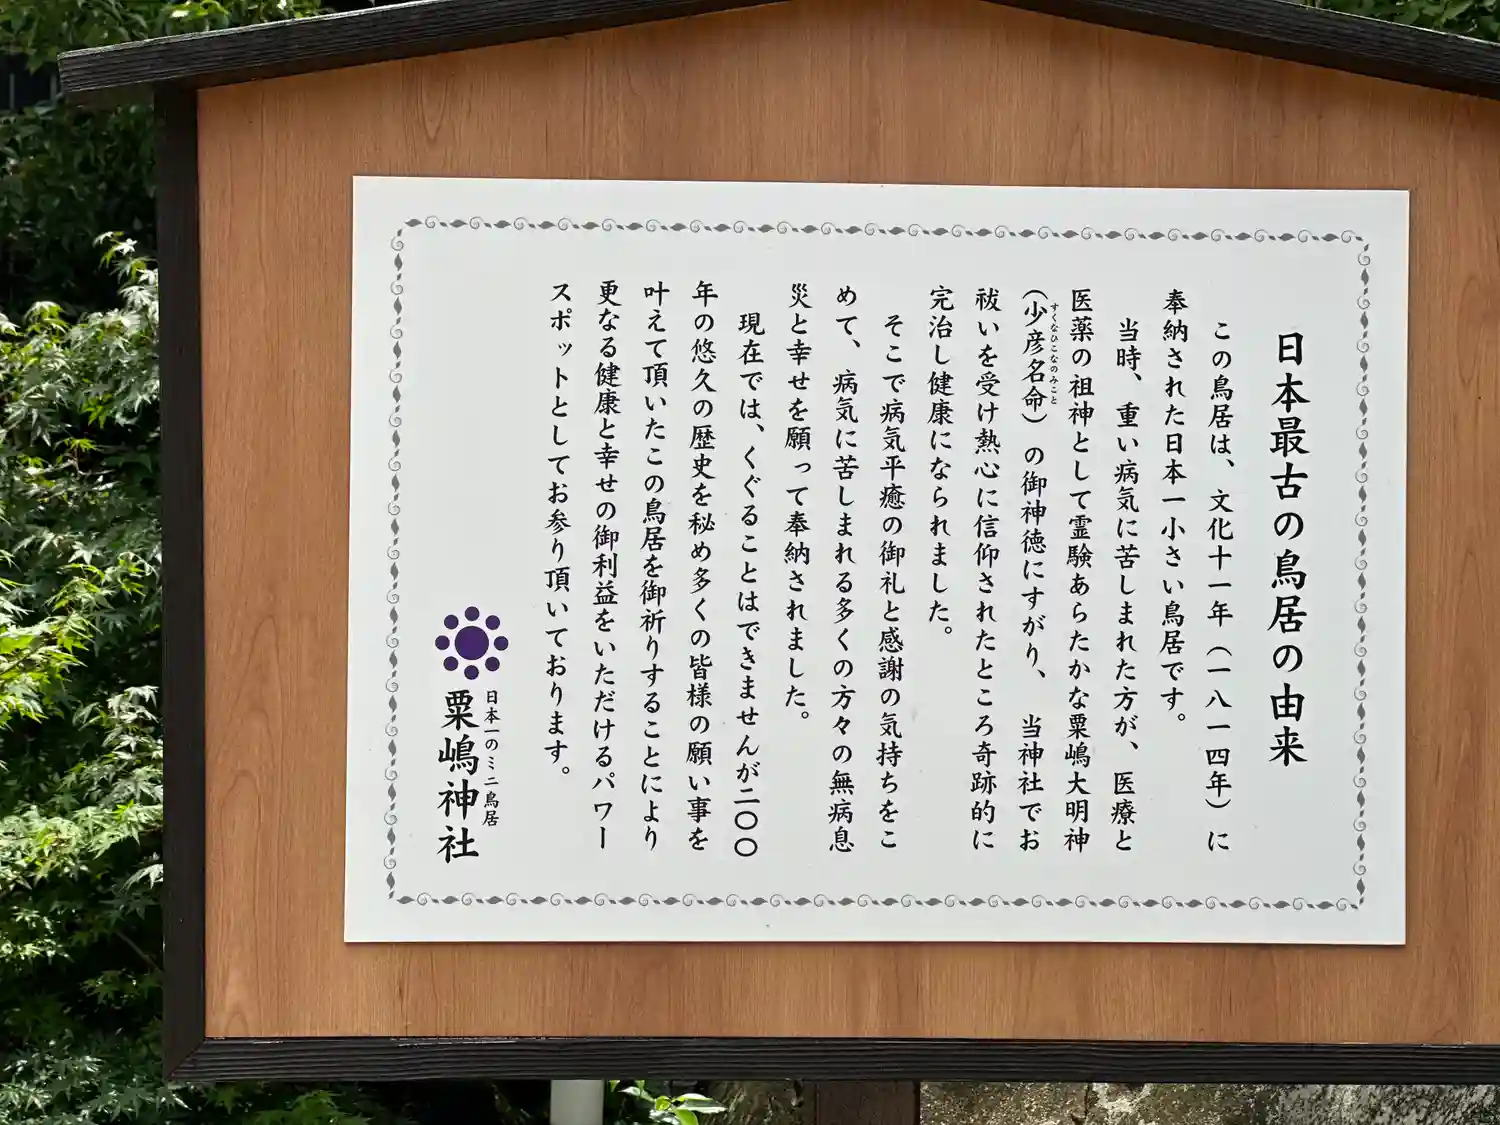 日本最古の鳥居の由来
この鳥居は、文化十一年（一八一四年）に
奉納された日本一小さい鳥居です。
当時、重い病気に苦しまれた方が、医療と
医薬の祖神として霊験あらたかな粟嶋大明神
（少彦名命）の御神徳にすがり、当神社でお
すくなひこなのみこと
祓いを受け熱心に信仰されたところ奇跡的に
完治し健康になられました。
そこで病気平癒の御礼と感謝の気持ちをこ
めて、病気に苦しまれる多くの方々の無病息
災と幸せを願って奉納されました。
現在では、くぐることはできませんが二〇〇
年の悠久の歴史を秘め多くの皆様の願い事を
叶えて頂いたこの鳥居を御祈りすることにより
更なる健康と幸せの御利益をいただけるパワー
スポットとしてお参り頂いております。
日本一のミニ鳥居
粟嶋神社